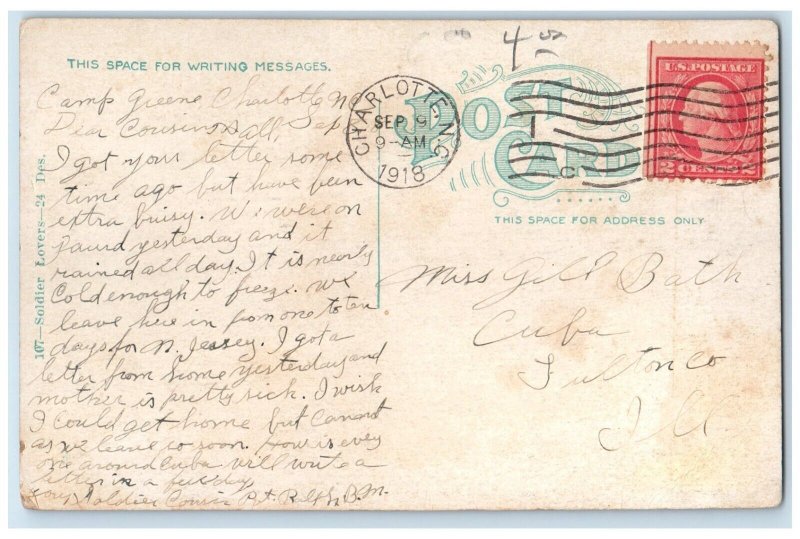 THIS SPACE FOR WRITING MESSAGES.
Camp Greene, Charlotte NC
Dear Cousins all,
I got your letter some
time ago but have been
extra buisy. We were on
Gaurd yesterday and it
rained all day. It is nearly
Cold enough to freeze. We
leave here in from one to ten
days for N. Jersey. I got a
letter from home yesterday and
mother is pretty sick. I wish
I could get home but Cannot
as we leave so soon. How is every
one around Cuba will write a
letter in a few days
your Soldier Cousin Pvt. Ralph B. M.
107—Soldier Lovers—24 Des.
CHARLOTTE N.C.
SEP 9
9-AM
1918
POST
CARD
THIS SPACE FOR ADDRESS ONLY
U.S. POSTAGE
2 CENTS 2
Miss Bath
Cuba
Fulton Co
Ill.